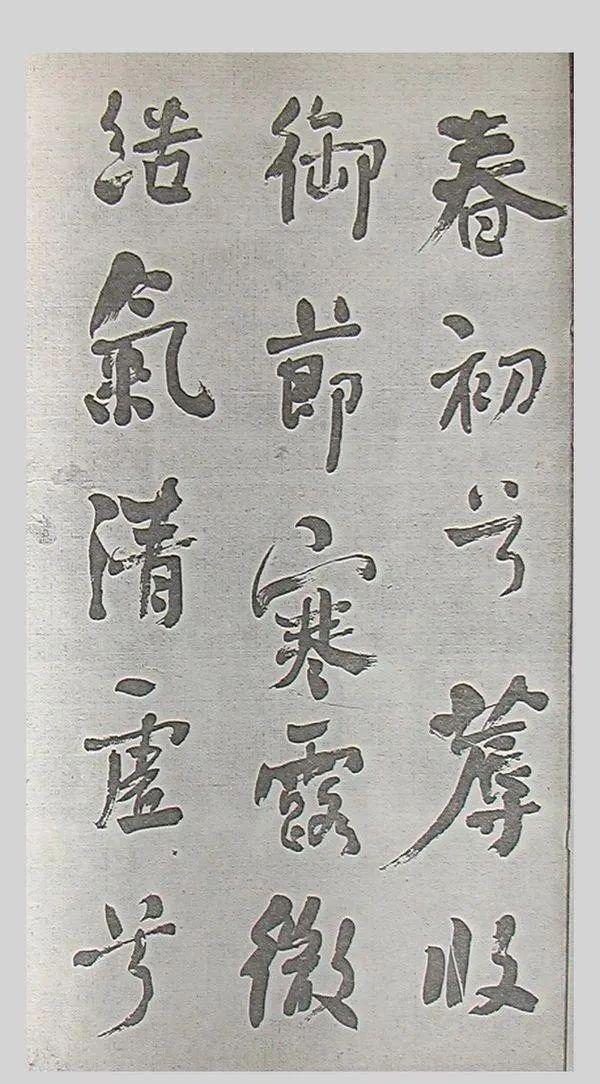 春初兮蓐收
御節寒露微
結氣清虛兮